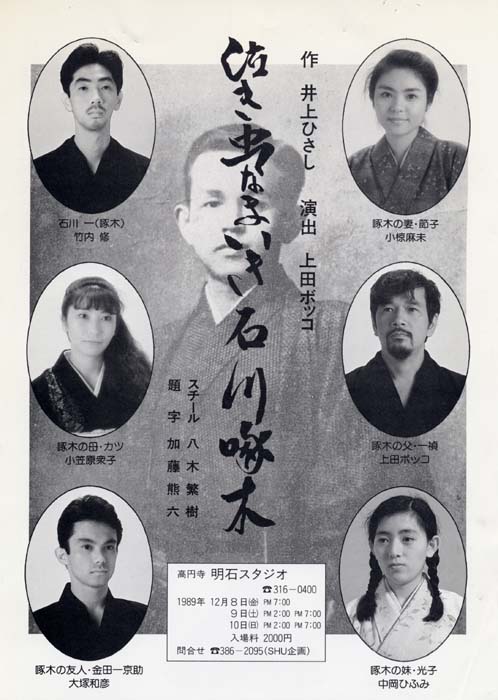 作 井上ひさし 演出 上田ボッコ
泣き虫なまいき石川啄木
スチール 八木繁樹
題字 加藤熊六
石川 一（啄木）
竹内 修
啄木の妻・節子
小椋麻未
啄木の母・カツ
小笠原衆子
啄木の父・一禎
上田ボッコ
啄木の友人・金田一京助
大塚和彦
啄木の妹・光子
中岡ひふみ
高円寺 明石スタジオ
☎316-0400
1989年 12月8日㈮ PM 7:00
9日㈯ PM 2:00 PM 7:00
10日㈰ PM 2:00 PM 7:00
入場料 2000円
問合せ ☎386-2095（SHU企画）